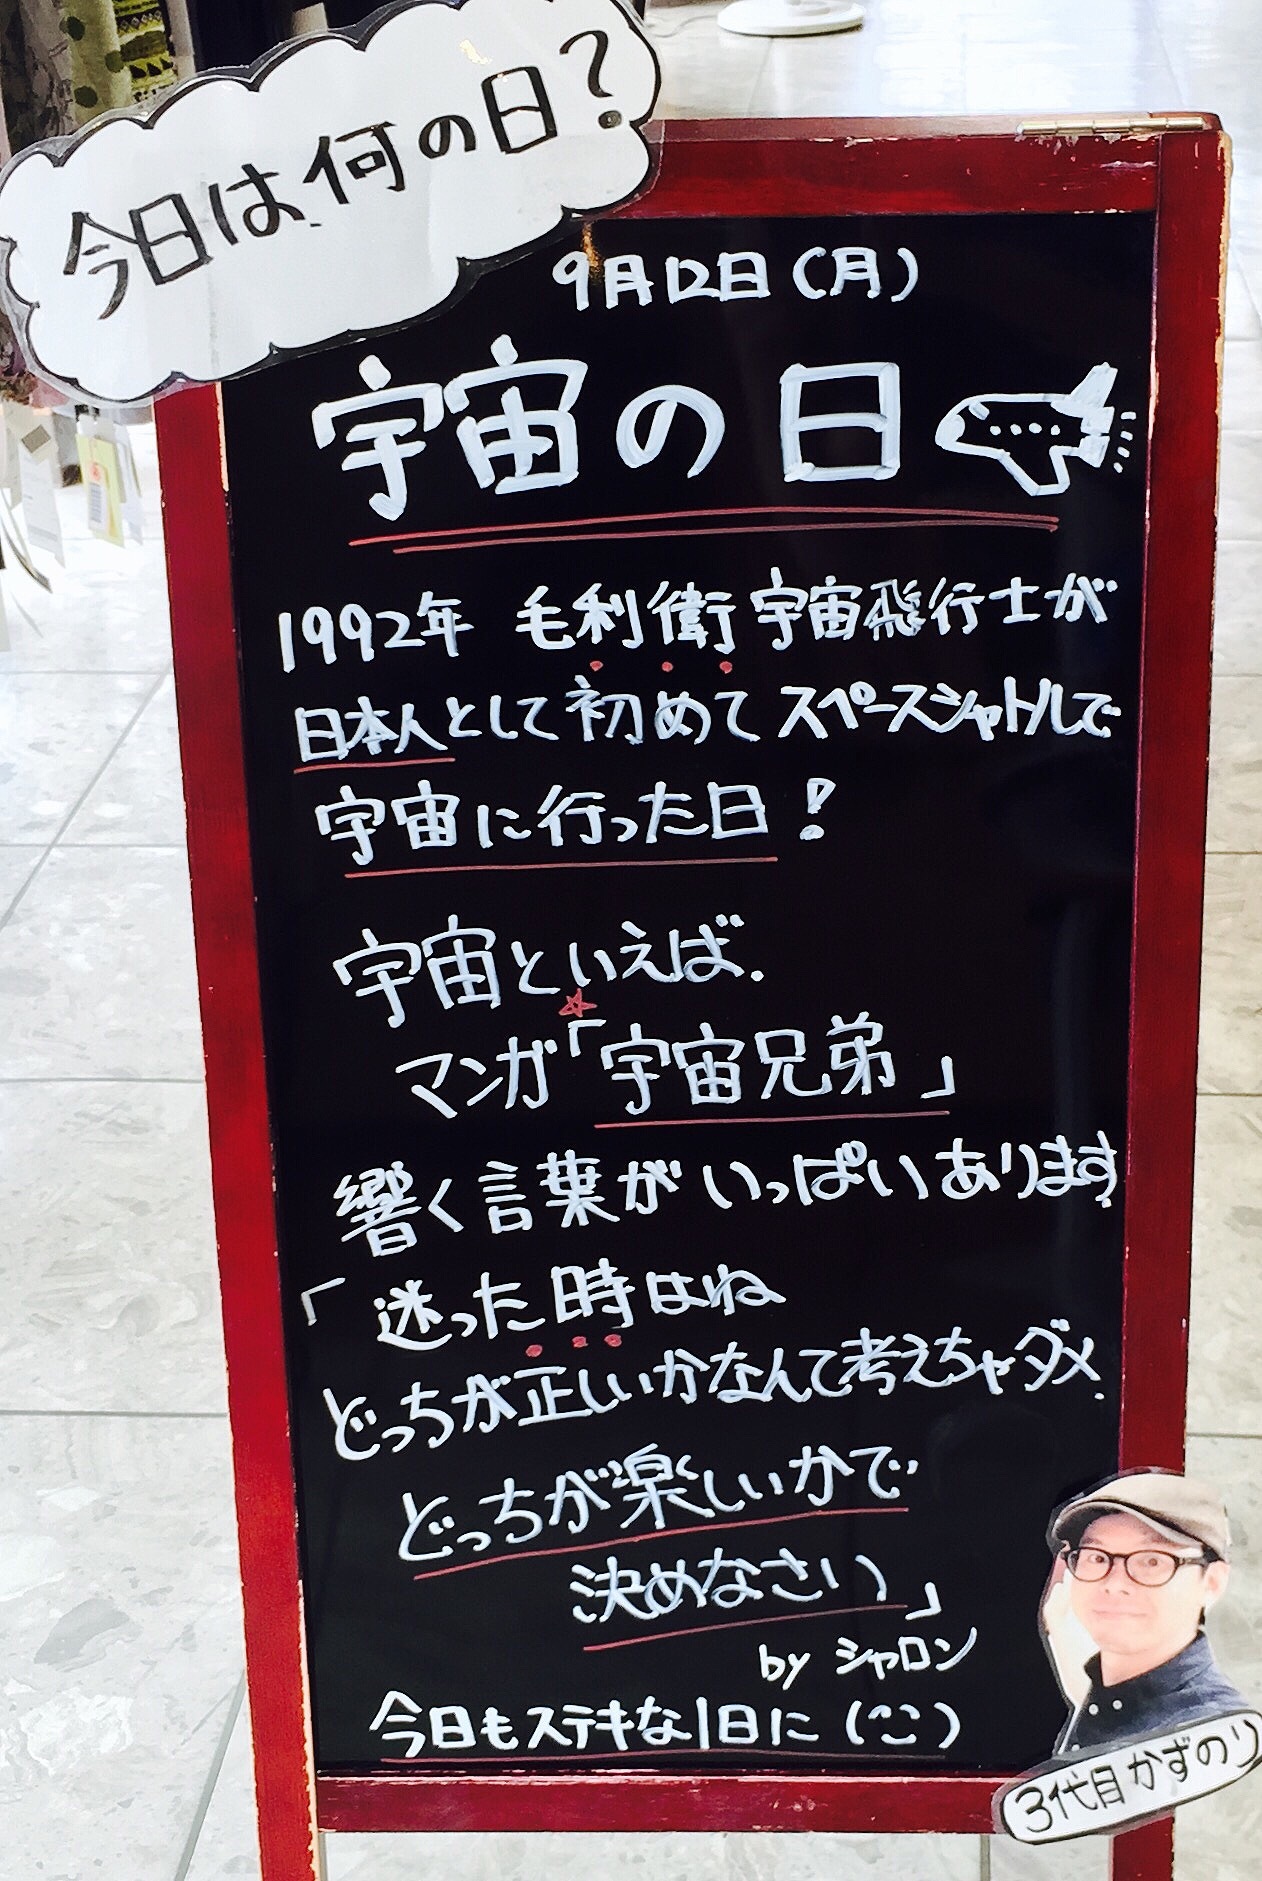 今日は何の日?
9月12日(月)
宇宙の日
1992年 毛利衛宇宙飛行士が
日本人として初めてスペースシャトルで
宇宙に行った日!
宇宙といえば、
マンガ「宇宙兄弟」
響く言葉がいっぱいあります
「迷った時はね
どっちが正しいかなんて考えちゃダメ、
どっちが楽しいかで
決めなさい」
by シャロン
今日もステキな1日に(^^)
3代目かずのり